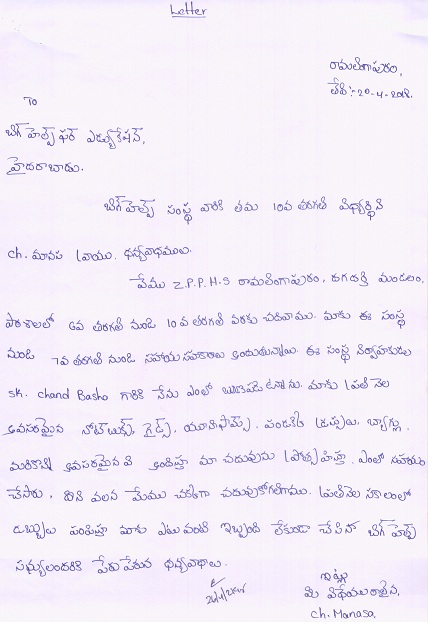 Letter
రామలింగాపురం,
తేది:- 20-4-2018.
To
బిగ్ హెల్ప్ ఫర్ ఎడ్యుకేషన్,
హైదరాబాదు.
బిగ్ హెల్ప్ సంస్థ వారికి తమ 10వ తరగతి విద్యార్థిని
ch. మానస వ్రాయు ధన్యవాదములు.
మేము Z.P.P.H.S రామలింగాపురం, దగదర్తి మండలం,
పాఠశాలలో 6వ తరగతి నుండి 10 వ తరగతి వరకు చదివాము. మాకు ఈ సంస్థ
నుండి 7వ తరగతి నుండి సహాయ సహకారాలు అందుతున్నాయి. ఈ సంస్థ నిర్వాహకుడు
sk. chand Basha గారికి నేను ఎంతో ఋణపడి ఉన్నాను. మాకు ప్రతి నెల
అవసరమైన నోట్ బుక్స్, గైడ్స్, యూనిఫామ్స్, పండుగకి డ్రస్సులు, బ్యాగ్లు,
మరికొన్ని అవసరమైనవి అందిస్తూ మా చదువును ప్రోత్సహిస్తూ, ఎంతో సహాయం
చేసారు, దాని వలన మేము చక్కగా చదువుకోగలిగాము. ప్రతినెల సకాలంలో
డబ్బులు పంపిస్తూ మాకు ఎటువంటి ఇబ్బంది లేకుండా చేసిన బిగ్ హెల్ప్
సభ్యులందరికి పేరు పేరున ధన్యవాదాలు.
ఇట్లు
మీ విధేయురాలైన,
ch. Manasa.